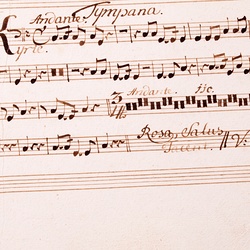 Andante. Tympana.
Kyrie.
Andante. 
Rosa, Salus
tacent. V: